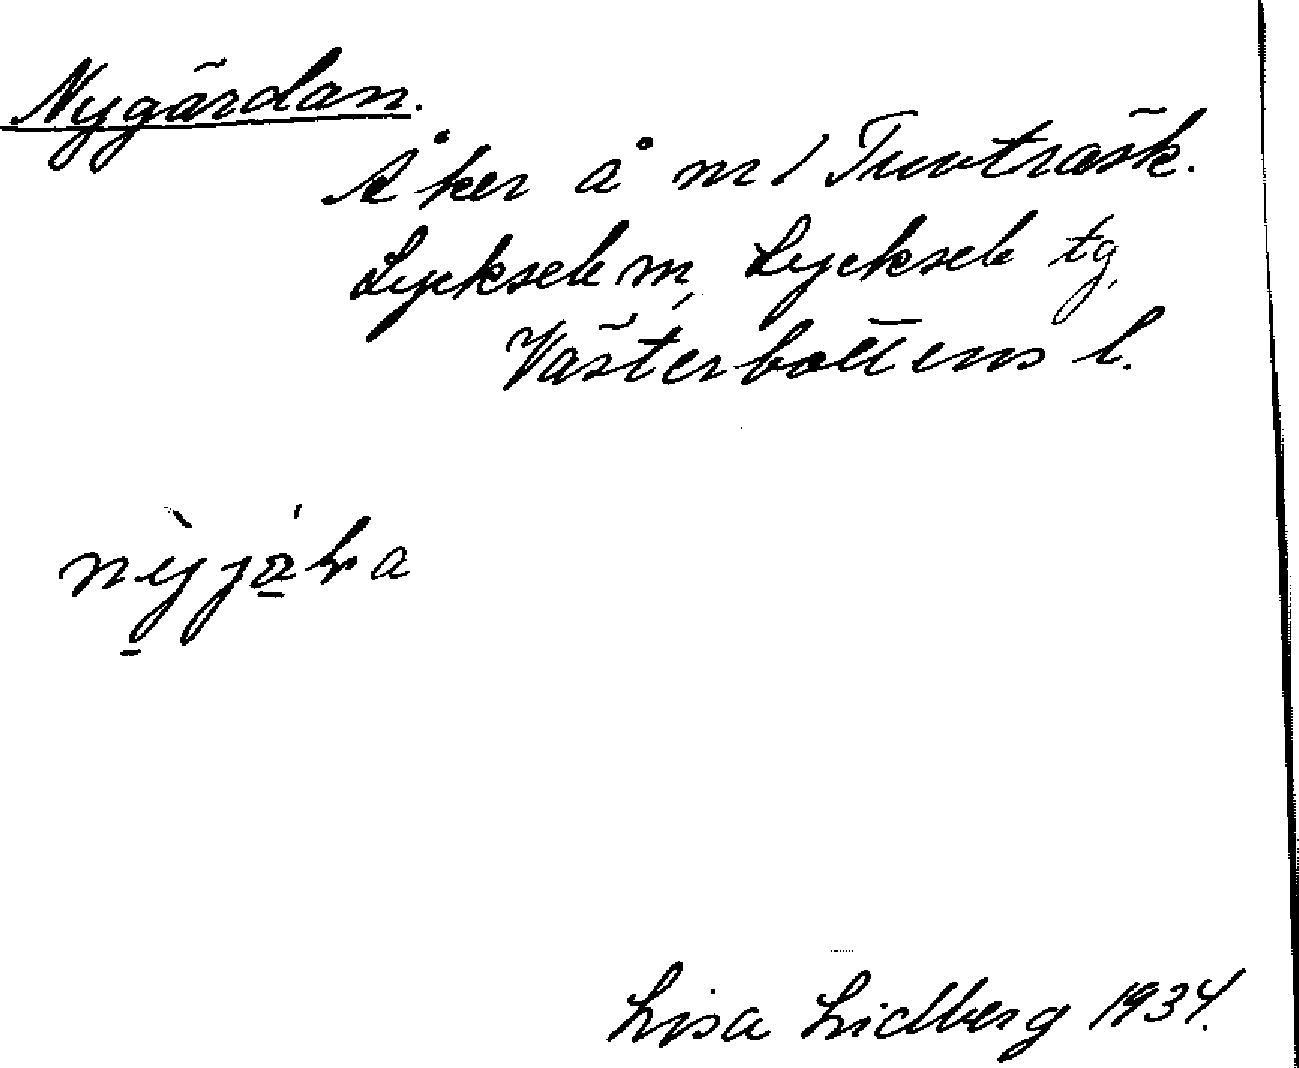 Nygärdan.
Åker å nr 1 Tuvträsk.
Lycksele sn, Lycksele tg,
Västerbottens l.
Lisa Lidberg 1934.